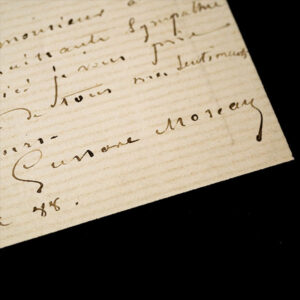 monsieur à
puissante sympathie
je vous prie
de tous mes sentiments
Gustave Moreau
88.